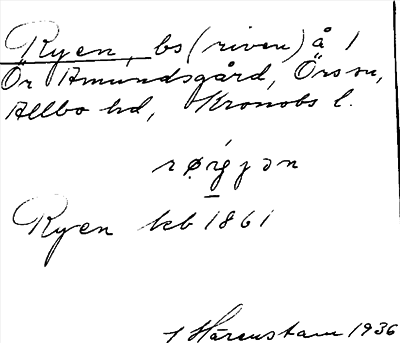 Ryen, bs (riven) å 1
Ör Amundsgård, Örs sn,
Allbo hd, Kronobs l.
Ryen kb 1861
Härenstam 1936